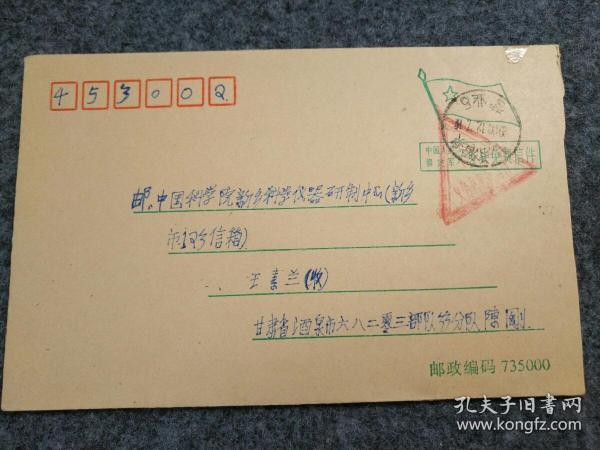 453000
中国人民解放军 义务兵免费信件
邮.中国科学院新乡科学仪器研制中心(新乡
市1号信箱)
王素兰(收)
甘肃省酒泉市六八二零三部队 分队 陈刚
邮政编码 735000
孔夫子旧书网
www.kongfz.com